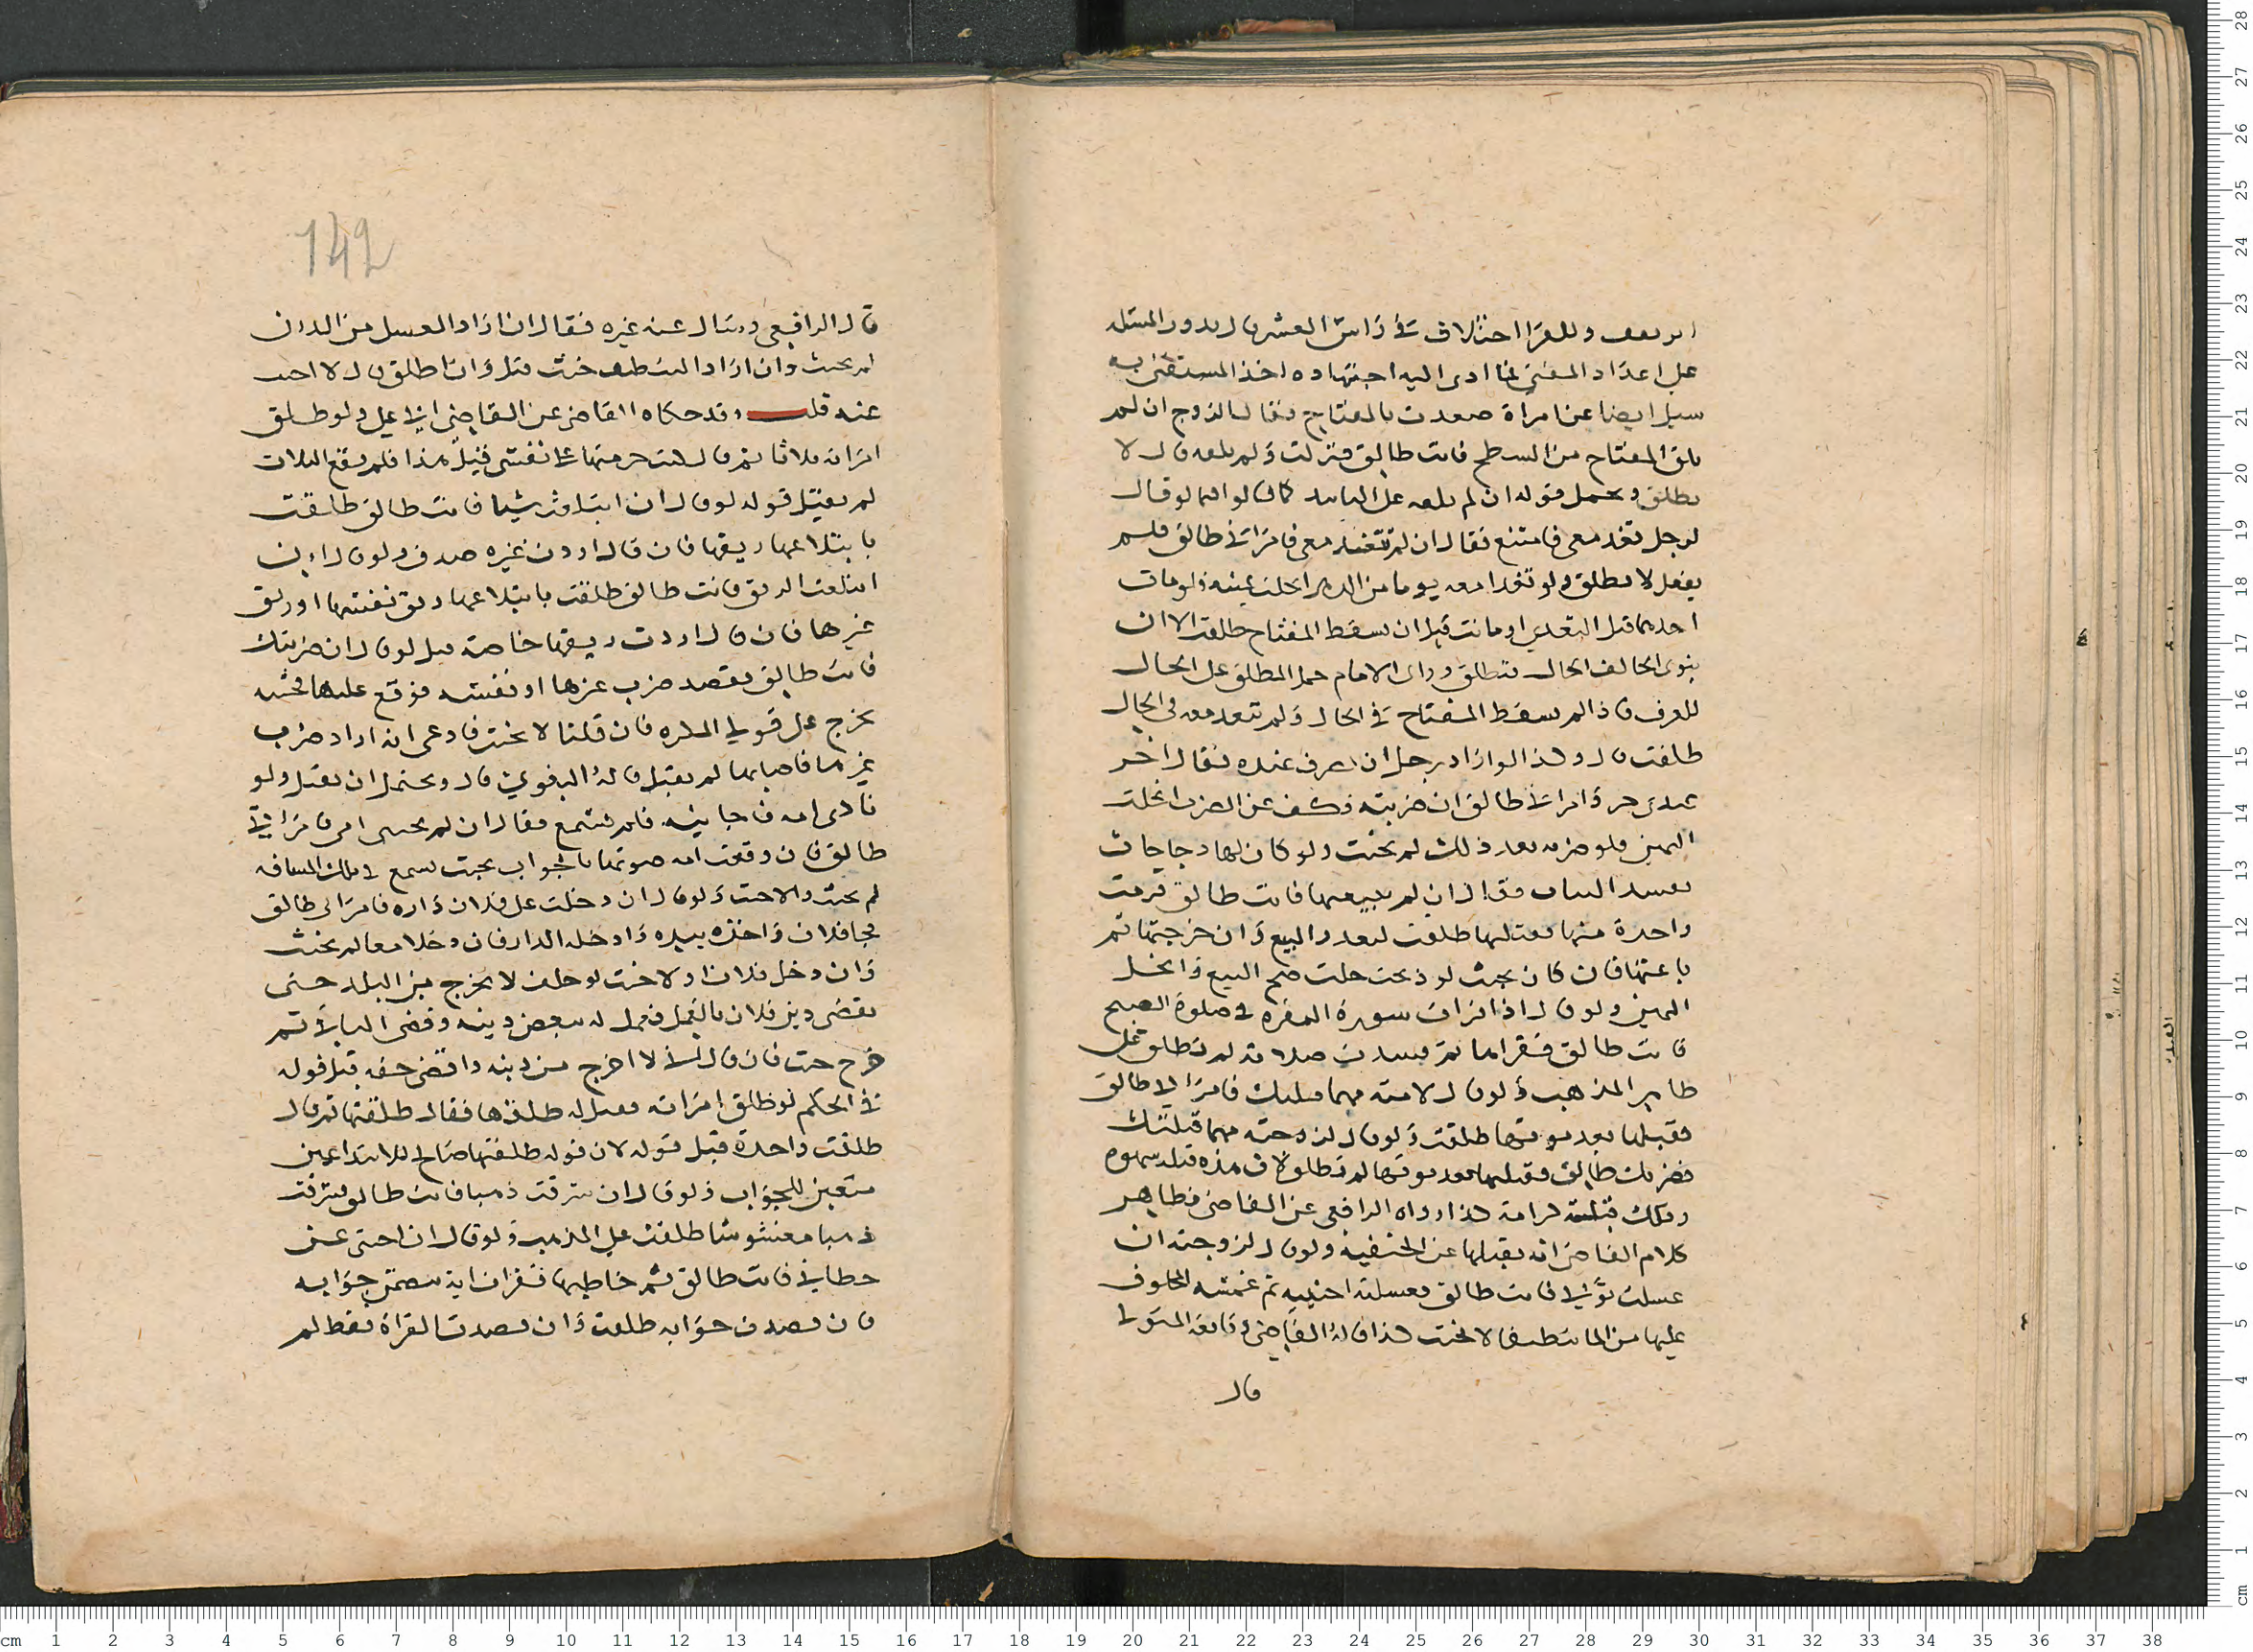 او نصف وللقرا اختلاف في رأس العشر قال يدور المسئلة
على اعداد المفتي فما ادى اليه اجتهاده اخذ المستفتي به
سيل ايضا عن امراة صعدت بالمفتاح فقال الزوج ان لم
تلق المفتاح من السطح فانت طالق فنزلت ولم تلقه قال لا
تطلق ويحمل قوله ان لم تلقه على الياس كما قالوا فيما لو قال
لرجل تغد معي فامتنع فقال ان لم تتغد معي فامراتي طالق فلم
يفعل لا تطلق ولو تغدا معه يوما من الدهر انحلت يمينه ولو مات
احدهما قبل التغدي او ماتت قبل ان يسقط المفتاح طلقت الا ان
ينوي الحالف الحال فتطلق وراى الامام حمل المطلق على الحال
للعرف فاذا لم يسقط المفتاح في الحال ولم يتغد معه في الحال
طلقت قال وكذا لو اراد رجل ان يضرب عبده فقال اخر
عبدي حر وامراتي طالق ان ضربته فكف عن الضرب انحلت
اليمين فلو ضربه بعد ذلك لم يحنث ولو كان لها دجاجات
تفسد الثياب فقال ان لم تبيعيها فانت طالق فرمت
واحدة منها فقتلها طلقت لتعذر البيع وان جرحتها ثم
باعتها فان كان بحيث لو ذبحت حلت صح البيع وانحل
اليمين ولو قال اذا قرات سورة البقرة في صلوة الصبح
فانت طالق فقراها ثم فسدت صلاته لم تطلق على
ظاهر المذهب ولو قال لامته مهما قبلتك فامراتي طالق
فقبلها بعد موتها طلقت ولو قال لزوجته مهما قبلتك
فضرتك طالق فقبلها بعد موتها لم تطلق لان هذه قبلة شهوة
وتلك قبلة كرامة هذا رواه الرافعي عن القاضي وظاهر
كلام القاضي انه نقلها عن الحنفية ولو قال لزوجته ان
غسلت ثوبي فانت طالق فغسلته اجنبية ثم غمسته المحلوف
عليها من الما تنظيفا لا يحنث هذا قاله القاضي وتابعه المتولي
قال
142
قال الرافعي وسال عنه غيره فقال ان اراد الغسل من الدرن
لم يحنث وان اراد التنظيف حنث قيل وان اطلق قال لا احب
عنه قلت وقد حكاه القاضي عن القاضي ابي علي ولو طلق
امراته ثلاثا ثم قال كنت حرمتها على نفسي قبل هذا فلم يقع الثلاث
لم يقبل قوله لو قال ان ابتلعت شيا فانت طالق طلقت
بابتلاعها ريقها فان قال اردت غيره صدق ولو قال ان
ابتلعت الريق فانت طالق طلقت بابتلاعها ريق نفسها او ريق
غيرها فان قال اردت ريقها خاصة قبل لو قال ان ضربتك
فانت طالق فقصد ضرب غيرها او نفسه فوقع عليها فحنثه
يخرج على قولي المكره فان قلنا لا يحنث فادعى انه اراد ضرب
غيرها فاصابها لم يقبل قاله البغوي قال ويحتمل ان يقبل ولو
نادى امه فاجابته فلم يسمع فقال ان لم تجبني امي فامراتي
طالق فان وقعت امه صوتها بالجواب بحيث يسمع في تلك المسافة
لم يحنث والا حنث ولو قال ان دخلت على فلان داره فامراتي طالق
فجا فلان واخذه بيده وادخله الدار فان دخلا معا لم يحنث
وان دخل فلان اولا حنث لو حلف لا يخرج من البلد حتى
يقضي دين فلان بالعمل فعمل له ببعض دينه وقضى الباقي ثم
خرج حنث فان قال اني لا اخرج من دينه واقضي حقه قبل قوله
في الحكم لو طلق امراته فقيل له طلقها فقال طلقتها ثم قال
طلقت واحدة قبل قوله لان قوله طلقتها صالح للابتدا غير
متعين للجواب ولو قال ان سرقت ذهبا فانت طالق فسرقت
ذهبا مغشوشا طلقت على المذهب ولو قال ان احتى عن
خطابي فانت طالق ثم خاطبها فقرات اية تتضمن جوابه
فان قصدت جوابه طلقت وان قصدت القراة فقط لم